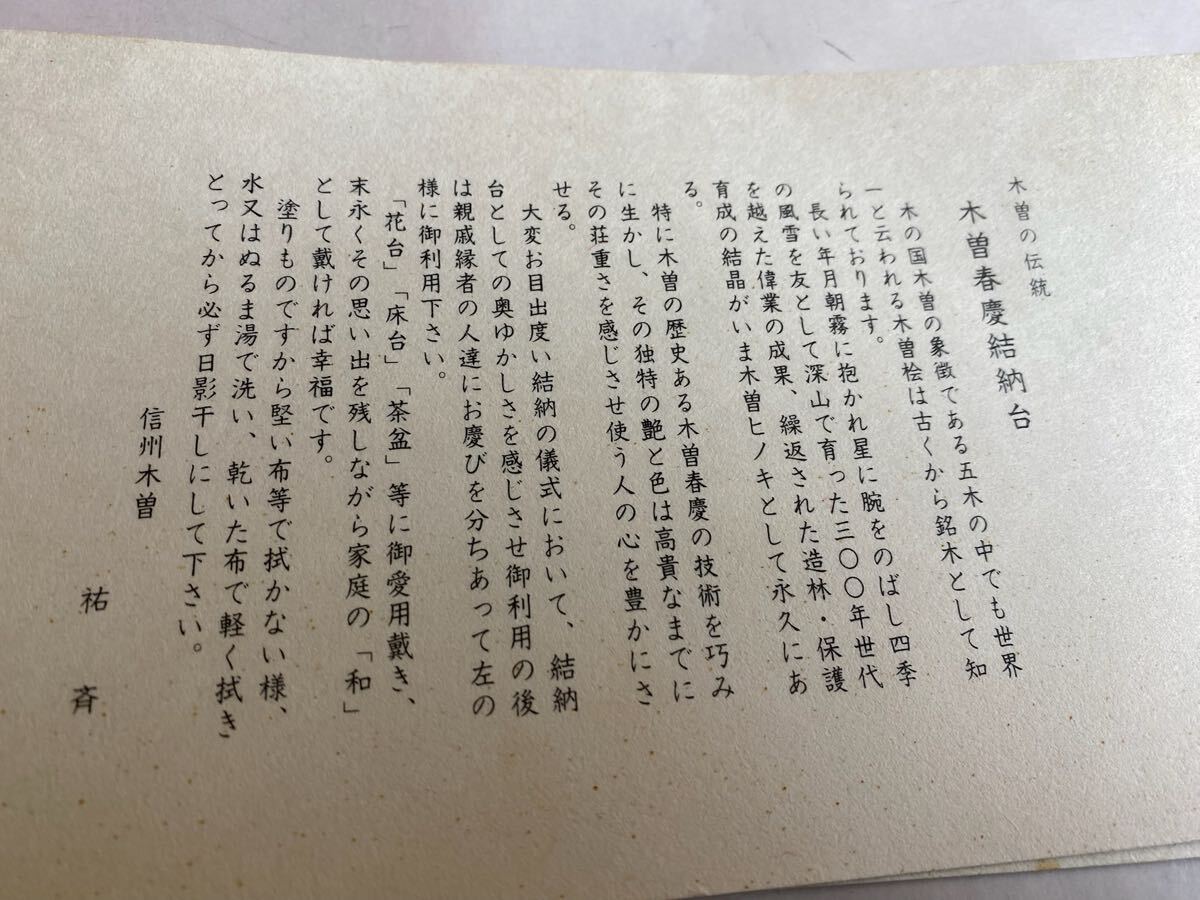 木曽の伝統
木曽春慶結納台
木の国木曽の象徴である五木の中でも世界
一と云われる木曽桧は古くから銘木として知
られております。
長い年月朝霧に抱かれ星に腕をのばし四季
の風雪を友として深山で育った三〇〇年世代
を越えた偉業の成果、繰返された造林・保護
育成の結晶がいま木曽ヒノキとして永久にあ
る。
特に木曽の歴史ある木曽春慶の技術を巧み
に生かし、その独特の艶と色は高貴なまでに
その荘重さを感じさせ使う人の心を豊かにさ
せる。
大変お目出度い結納の儀式において、結納
台としての奥ゆかしさを感じさせ御利用の後
は親戚縁者の人達にお慶びを分ちあって左の
様に御利用下さい。
「花台」「床台」「茶盆」等に御愛用戴き、
末永くその思い出を残しながら家庭の「和」
として戴ければ幸福です。
塗りものですから堅い布等で拭かない様、
水又はぬるま湯で洗い、乾いた布で軽く拭き
とってから必ず日影干しにして下さい。
信州木曽
祐斉